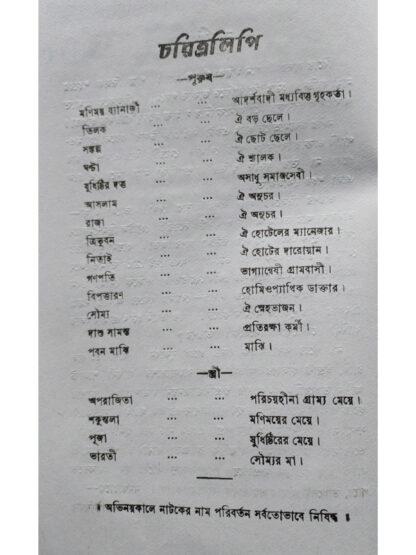 চরিত্রলিপি
—পুরুষ—
মণিময় ব্যানার্জী ... ... আদর্শবাদী মধ্যবিত্ত গৃহকর্তা।
তিলক ... ... ঐ বড় ছেলে।
সঞ্জয় ... ... ঐ ছোট ছেলে।
ঘন্টা ... ... ঐ শ্যালক।
যুধিষ্ঠির দত্ত ... ... অসাধু সমাজসেবী।
আসলাম ... ... ঐ অনুচর।
রাজা ... ... ঐ অনুচর।
ত্রিভুবন ... ... ঐ হোটেলের ম্যানেজার।
নিতাই ... ... ঐ হোটের দারোয়ান।
গণপতি ... ... ভাগ্যান্বেষী গ্রামবাসী।
বিপত্তারণ ... ... হোমিওপ্যাথিক ডাক্তার।
সৌম্য ... ... ঐ স্নেহভাজন।
দাশু সামন্ত ... ... প্রতিরক্ষা কর্মী।
পবন মাঝি ... ... মাঝি।
—স্ত্রী—
অপরাজিতা ... ... পরিচয়হীনা গ্রাম্য মেয়ে।
শকুন্তলা ... ... মণিময়ের মেয়ে।
পূজা ... ... যুধিষ্ঠিরের মেয়ে।
ভারতী ... ... সৌম্যর মা।
॥ অভিনয়কালে নাটকের নাম পরিবর্তন সর্বতোভাবে নিষিদ্ধ ॥